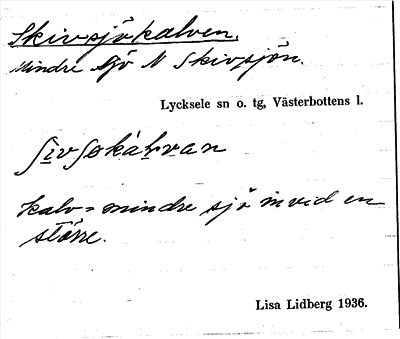 Skivsjökalven.
mindre sjö N Skivsjön.
Lycksele sn o. tg, Västerbottens l.
ʃivʃøkàlvan
kalv = mindre sjö invid en
större.
Lisa Lidberg 1936.